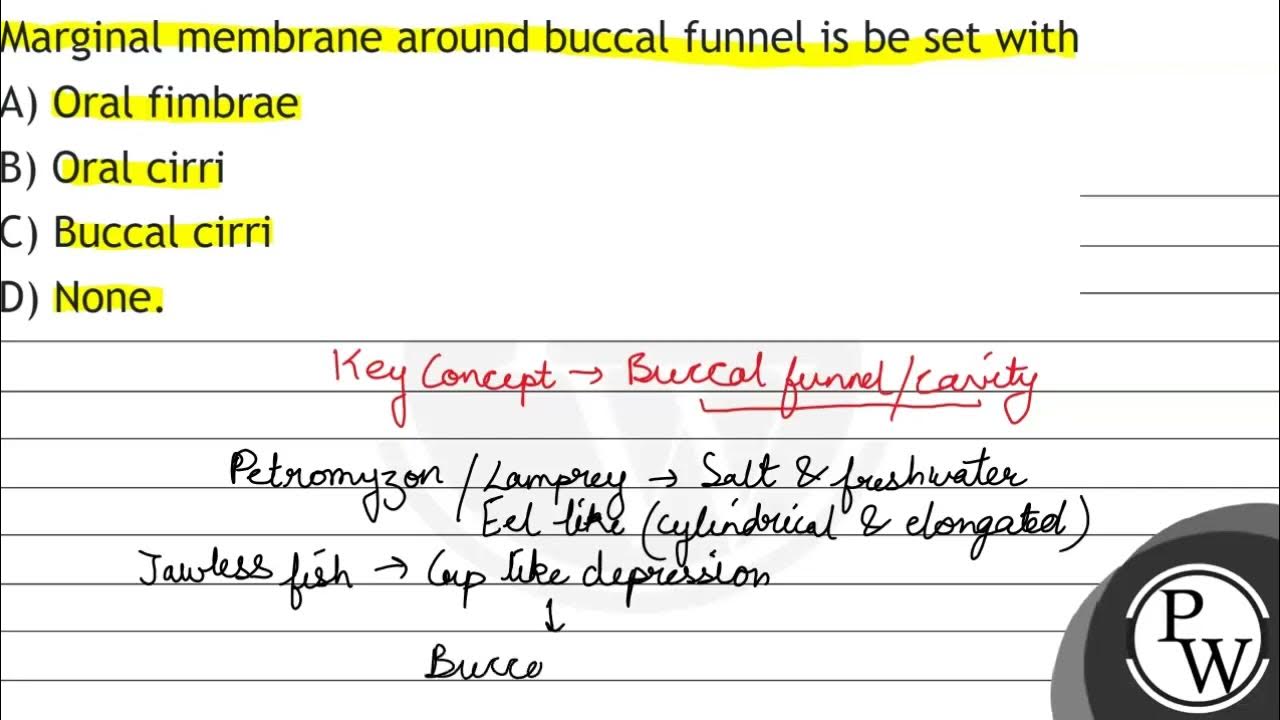 Marginal membrane around buccal funnel is be set with
A) Oral fimbrae
B) Oral cirri
C) Buccal cirri
D) None.
Key Concept → Buccal funnel/cavity
Petromyzon / Lamprey → Salt & freshwater
Eel like (cylindrical & elongated)
Jawless fish → Cup like depression
↓
Bucco
P
W